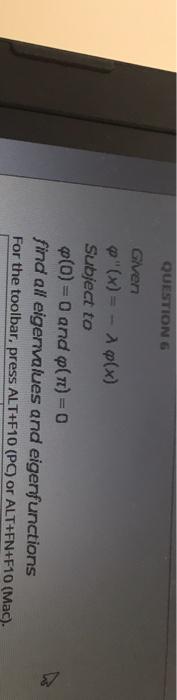 QUESTION 6
Given
φ''(x) = − λ φ(x)
Subject to
φ(0) = 0 and φ(π) = 0
find all eigenvalues and eigenfunctions
For the toolbar, press ALT+F10 (PC) or ALT+FN+F10 (Mac).